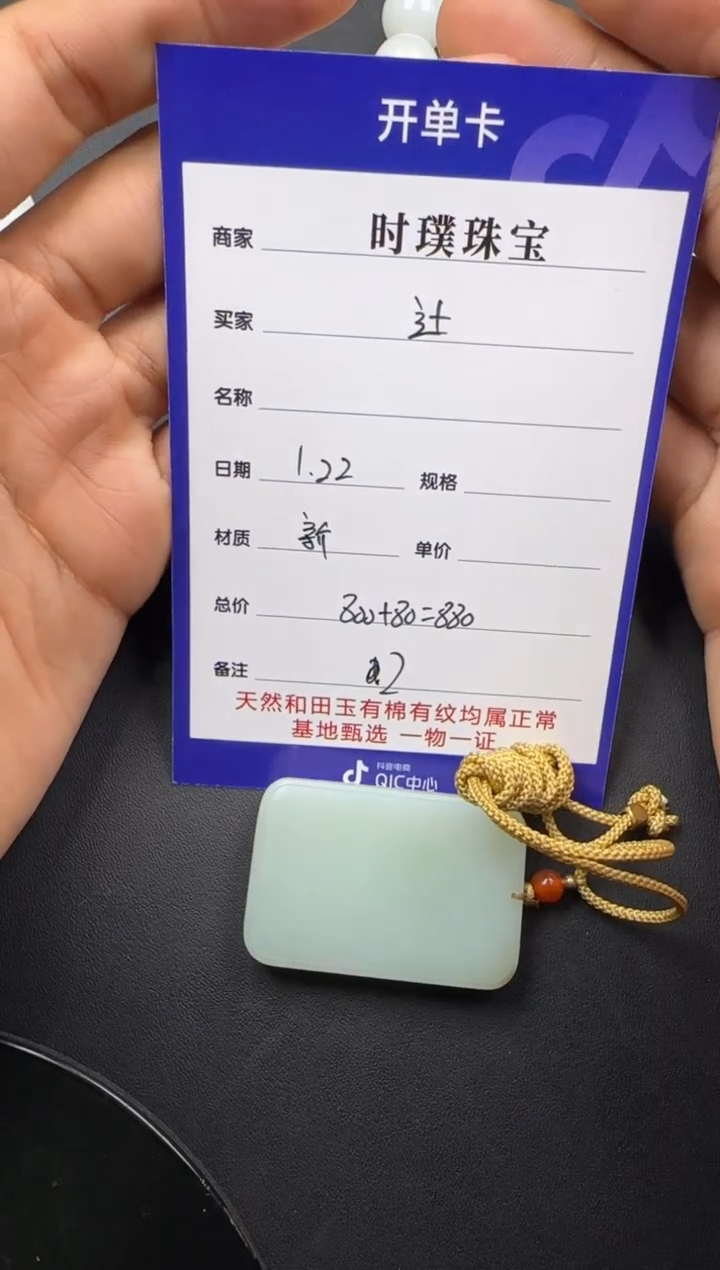 开单卡
商家 时璞珠宝
买家
名称
日期 1.22 规格
材质 新 单价
总价 800+80=880
备注
天然和田玉有棉有纹均属正常
基地甄选 一物一证
抖音电商
QIC中心